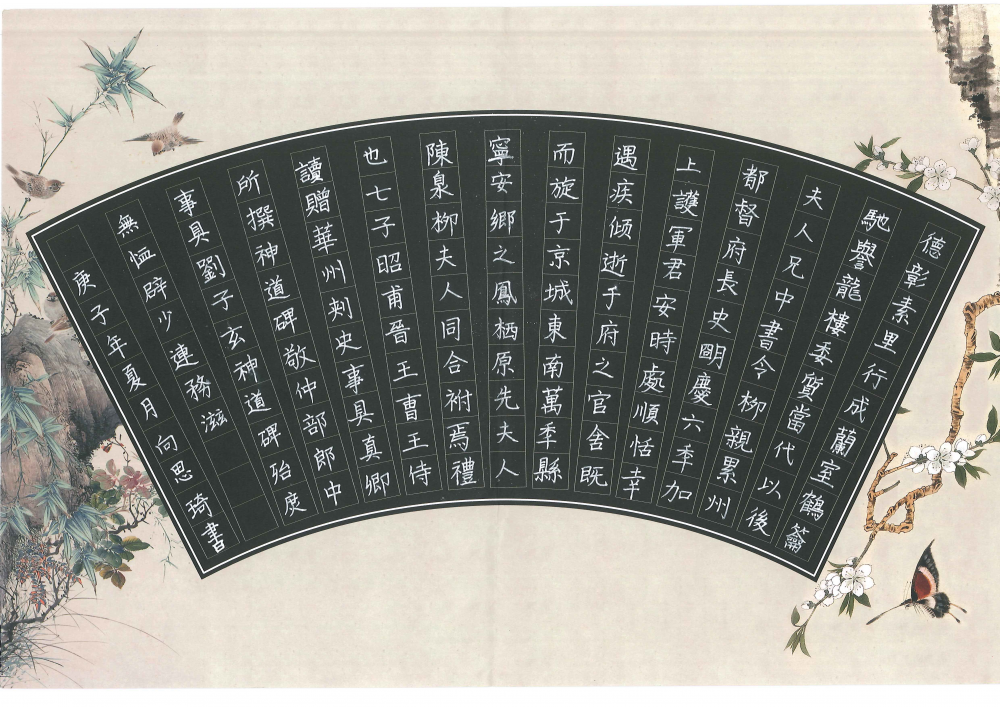 德彰素里行成蘭室鶴籥
馳譽龍樓委質當代以後
夫人兄中書令柳親累州
都督府長史顯慶六年加
上護軍君安時處順恬幸
遇疾傾逝于府之官舍既
而旋于京城東南萬季縣
寧安鄉之鳳栖原先夫人
陳泉柳夫人同合祔焉禮
也七子昭甫晉王曹王侍
讀贈華州刺史事具真卿
所撰神道碑敬仲部郎中
事具劉子玄神道碑殆庶
無恤辟少連務滋
庚子年夏月向思琦書